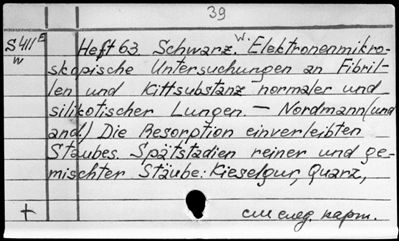 39
S411E Heft 63 Schwarz. W. Elektronenmikro-
W skopische Untersuchungen an Fibril-
len und Kittsubstanz normaler und
silikotischer Lungen. — Nordmann (und
and.) Die Resorption einverleibten
Staubes. Spätstadien reiner und ge-
mischter Stäube: Kieselgur, Quarz,
+ см след. карт.